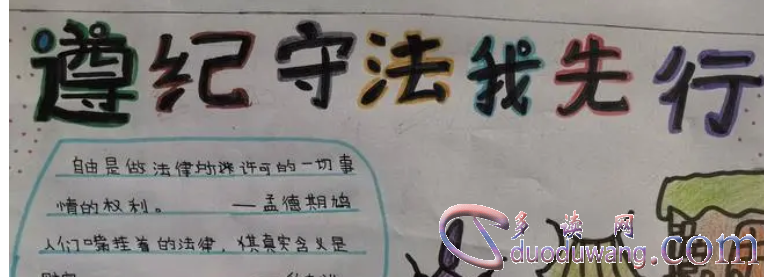 遵纪守法我先行
自由是做法律所许可的一切事
情的权利。 —孟德斯鸠
人们嘴挂着的法律，其真实含义是
财富
多读网
duoduwang.com